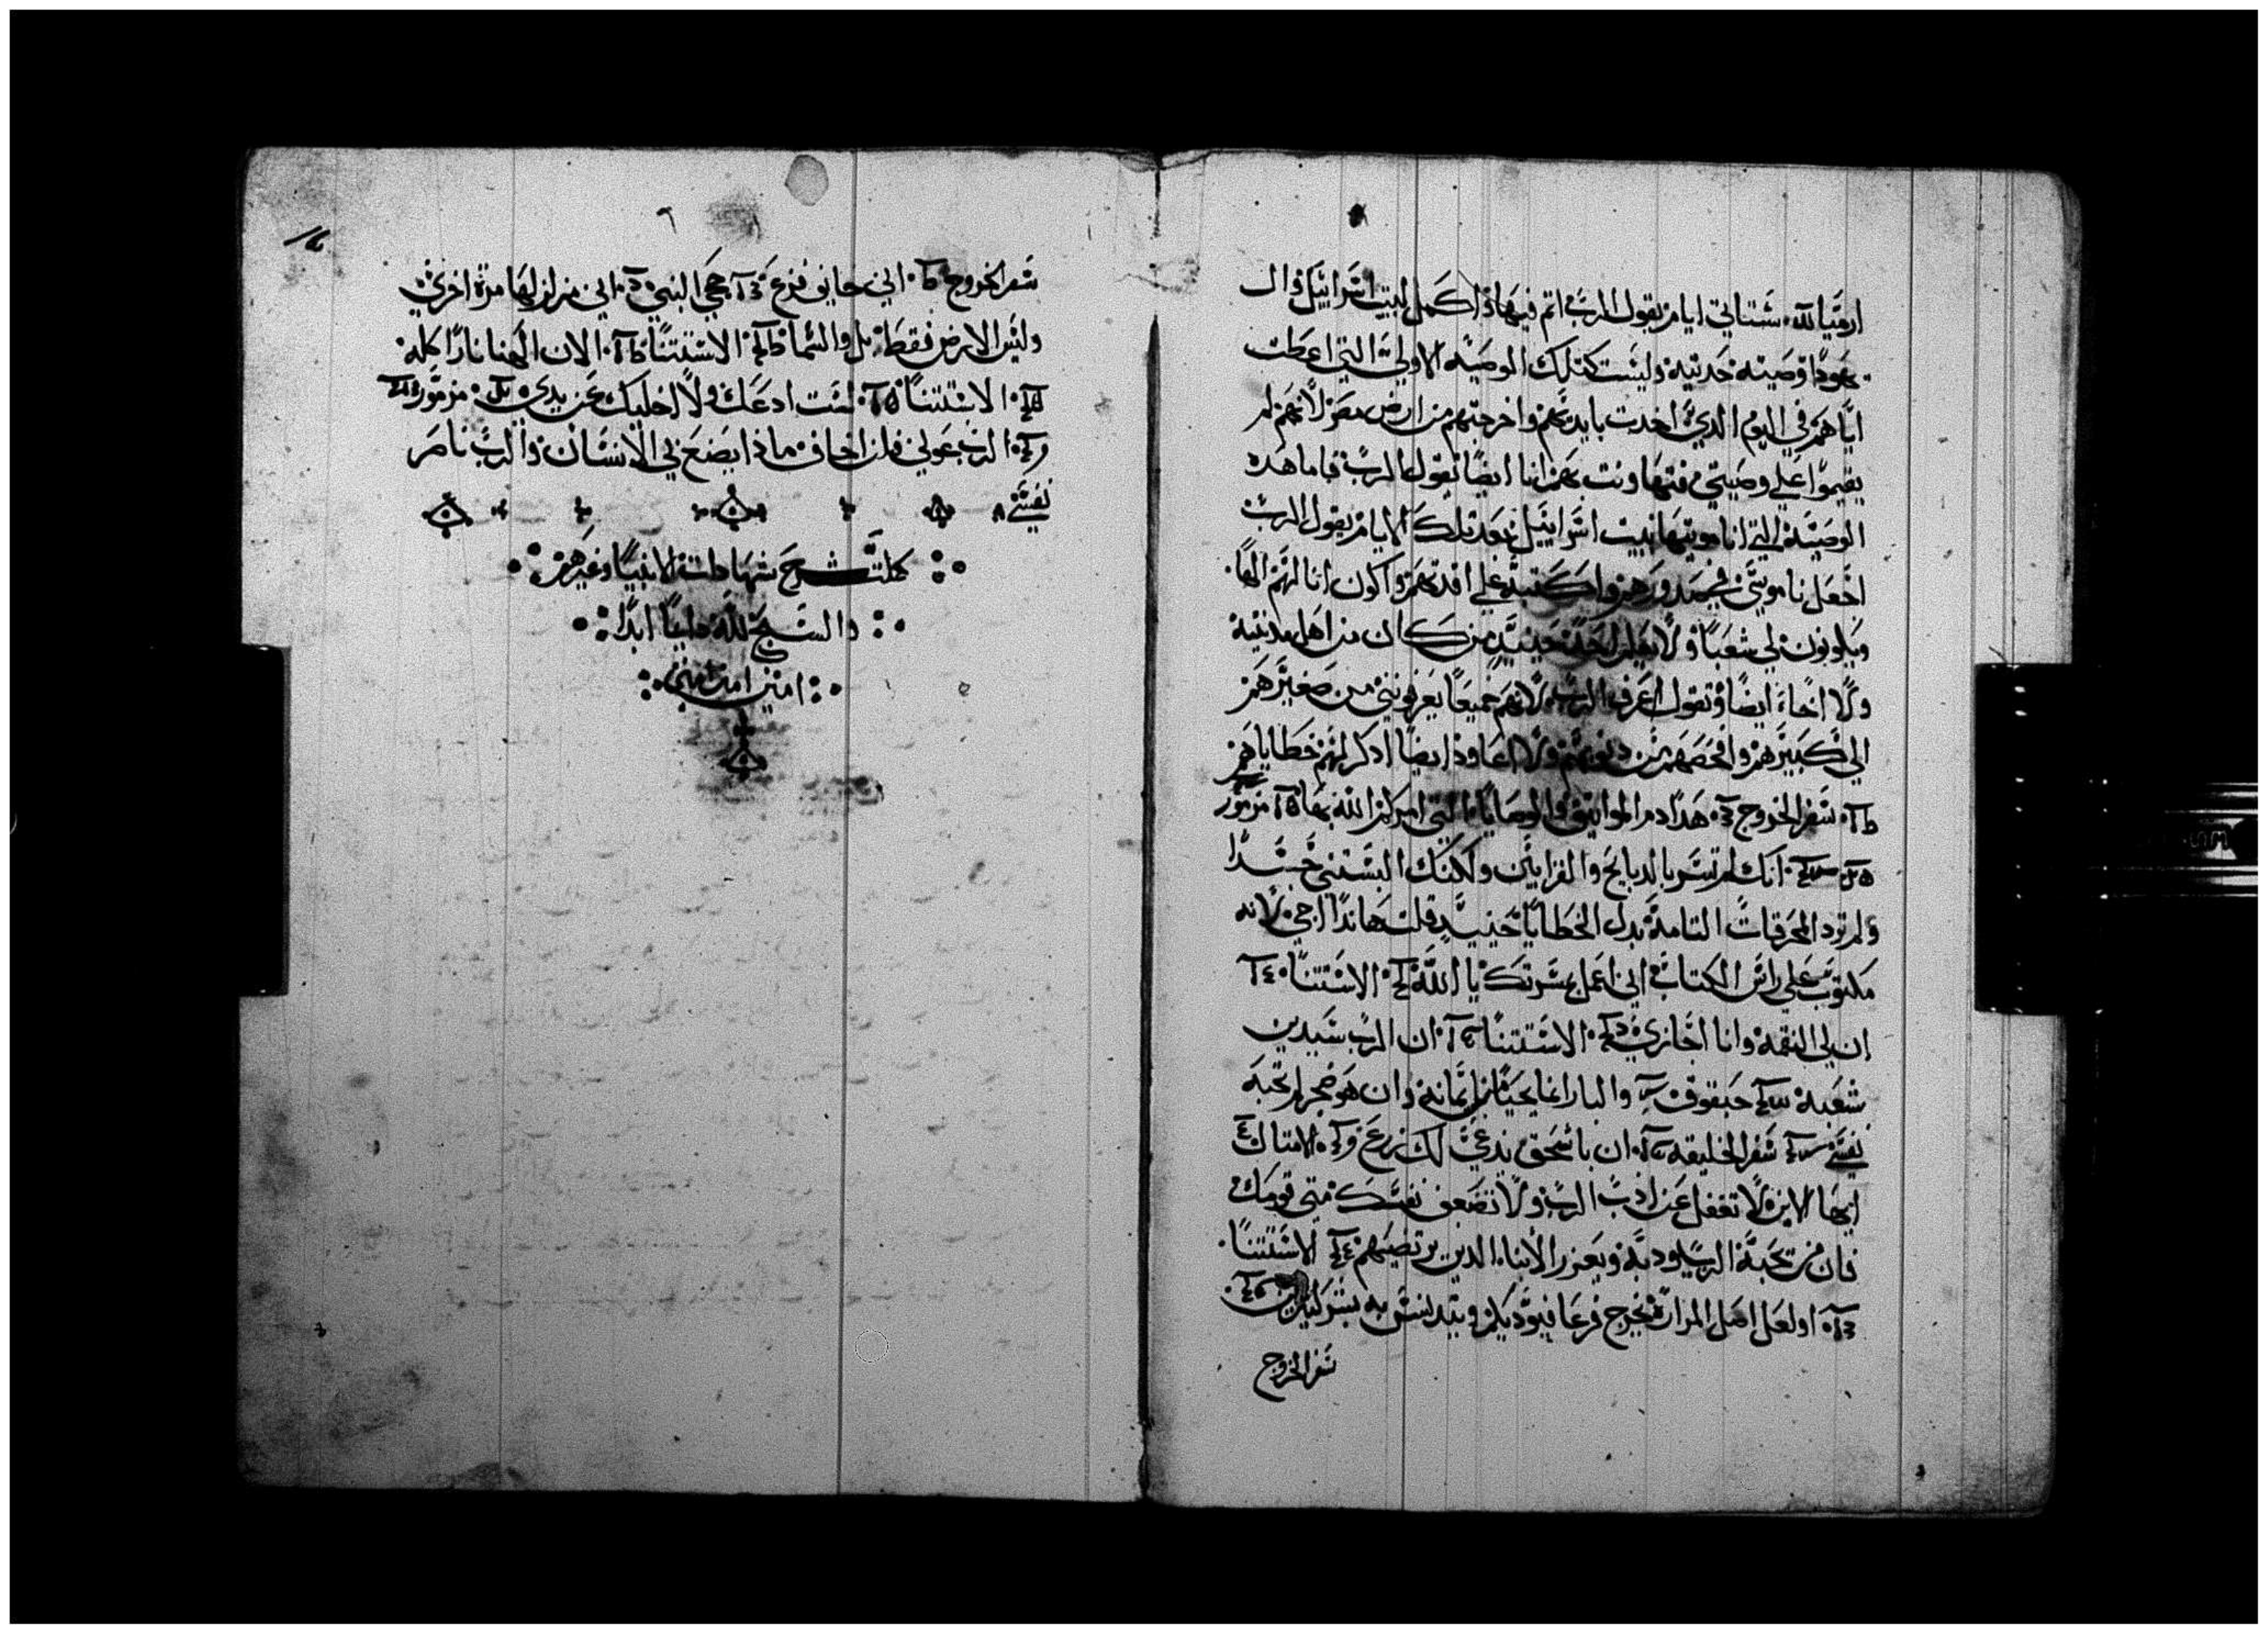 ارميا الله شتاتي ايام يقول الرب اتم فيها واكمل لبيت اسراييل وال
يهودا وصيته حديثه وليست كتلك الوصيه الاولى التي اعطت
اباهم في اليوم الذي اخدت بايديهم واخرجتهم من ارض مصر لانهم لم
يقيموا على وصيتي فتهاونت بهم انا ايضا يقول الرب فاما هده
الوصيه التي انا موتيها لبيت اسراييل بعد تلك الايام يقول الرب
اجعل ناموسي في صدورهم واكتبه على افدتهم واكون انا لهم الها
ويكونون لي شعبا ولا يعلم احد حينيد من كان من اهل مدينته
ولا اخاه ايضا وتقول اعرف الرب لانهم جميعا يعرفونني من صغيرهم
الى كبيرهم وامحصهم من دنوبهم ولا اعاود ايضا ادكر لهم خطاياهم
سفر الخروج هدا دم المواتيق والوصايا التي امركم الله بها مزمور
انك لم تسر بالدبايح والقرابين ولكنك البستني جسدا
ولم ترد المحرقات التامة بدل الخطايا حينيد قلت هاندا اجي لانه
مكتوب على راس الكتاب اني اعمل بمسرتك يا الله الاستتنا
ان لي النقمة وانا اجازي الاستتنا ان الرب سيدين
شعبه حبقوق والبار انما يحيا من ايمانه وان هو ضجر لم تحبه
نفسي سفر الخليقه ان باسحق يدعى لك زرع الامتال
ايها الابن لا تغفل عن ادب الرب ولا تضعف نفسك متى قومك
فان من تحبه الرب يودبه ويعزر الابنا الدين يرتضيهم الاستتنا
او لعل اصل المرارة يخرج فرعا فيوديكم ويتدنس به بشر كتيرين
سفر الخروج
سفر الخروج اني خايف فزع حجي النبي اني مزلزلها مرة اخرى
وليس الارض فقط بل والسما الاستتنا الان الهنا نارا كله
الاستتنا لست ادعك ولا اخليك عن يدي مزمور
الرب عوني فلن اخاف ماذا يصنع بي الانسان والرب ناصر
نفسي
كملت شرح شهادات الانبيا وغيرهم
والسبح لله دايما ابدا
امين امين امين